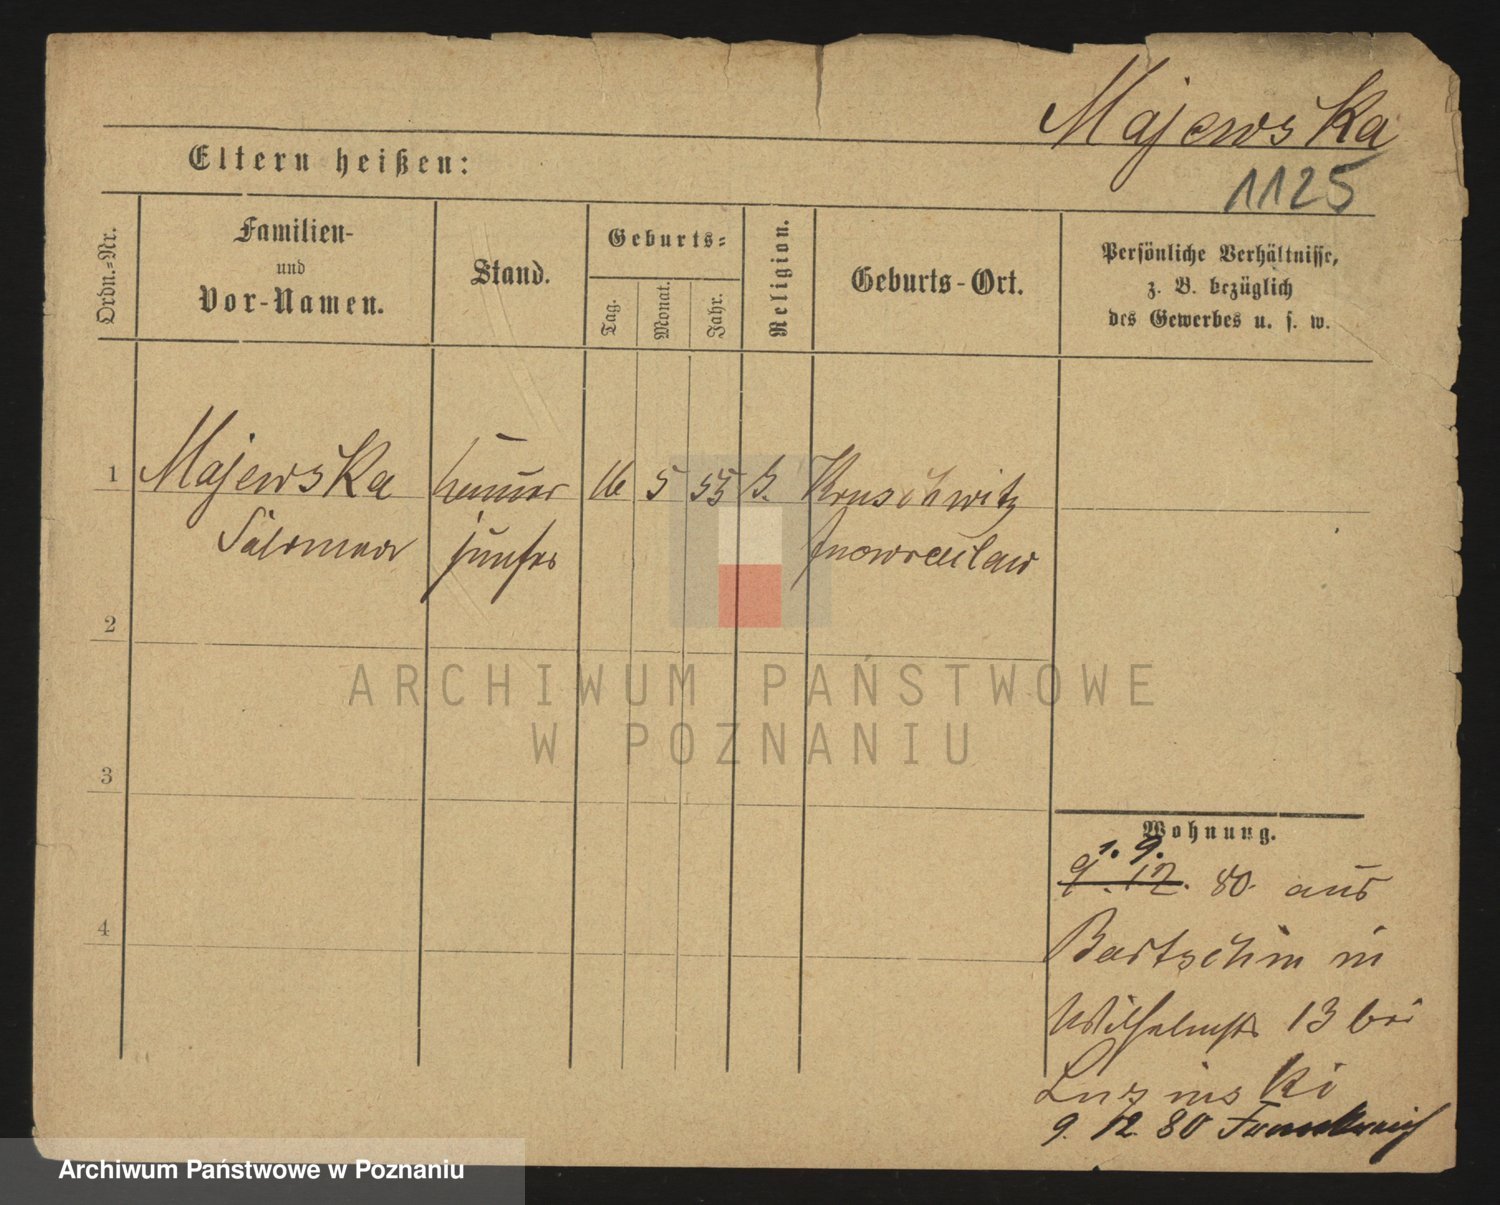 Majewska
1125
Eltern heißen:
Ordn.-Nr.
Familien-
und
Vor-Namen.
Stand.
Geburts-
Tag.
Monat.
Jahr.
Religion.
Geburts-Ort.
Persönliche Verhältnisse,
z. B. bezüglich
des Gewerbes u. s. w.
1
Majewska
16
5
55
Kruschwitz
Salomea
Inowraclaw
2
3
4
ARCHIWUM PAŃSTWOWE
W POZNANIU
Wohnung.
1. 9.
9. 12. 80. aus
Bartschin in
Wilhelmstr 13 bei
Luzinski
9. 12. 80 Frankreich
Archiwum Państwowe w Poznaniu